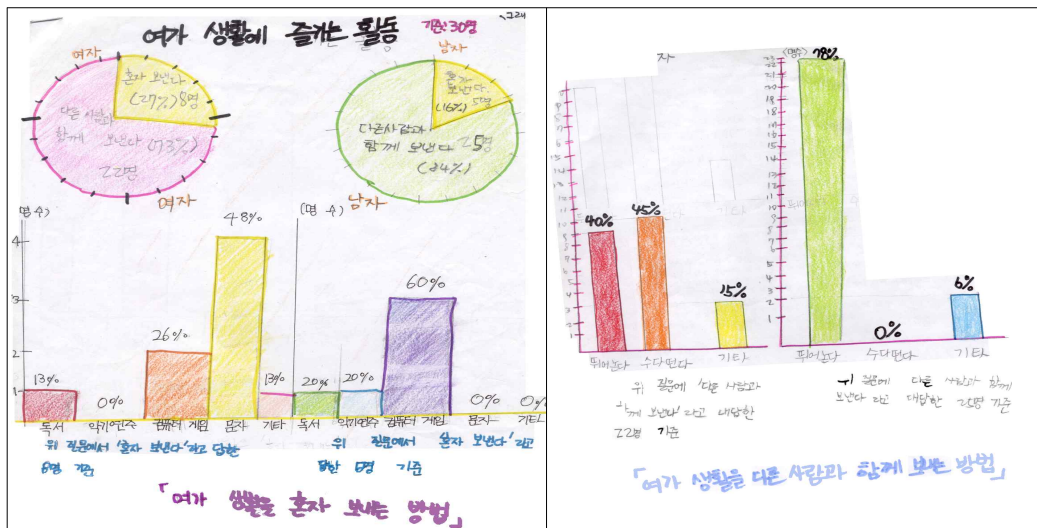 여가 생활에 즐기는 활동 기준:30명
여자
혼자 보낸다
(27%)8명
다른 사람과
함께 보낸다(73%)
22명
여자
남자
혼자
보낸다
5명
(16%)
다른사람과
함께 보낸다 25명
(84%)
남자
명 수)
4
3
2
1
13%
0%
26%
48%
13%
독서 악기연주 컴퓨터 게임 문자 기타
위 질문에서 '혼자 보낸다'라고 답한
8명 기준
(명 수)
20%
20%
60%
0%
0%
독서 악기연주 컴퓨터 게임 문자 기타
위 질문에서 혼자 보낸다'라고
답한 5명 기준
「여가 생활을 혼자 보내는 방법」
자
40%
45%
15%
뛰어논다 수다떤다 기타
위 질문에 '다른 사람과
함께 보낸다'라고 대답한
22명 기준
(명수)
78%
0%
6%
뛰어논다 수다떤다 기타
위 질문에 다른 사람과 함께
보낸다 라고 대답한 기준
「여가 생활을 다른 사람과 함께 보내는 방법」